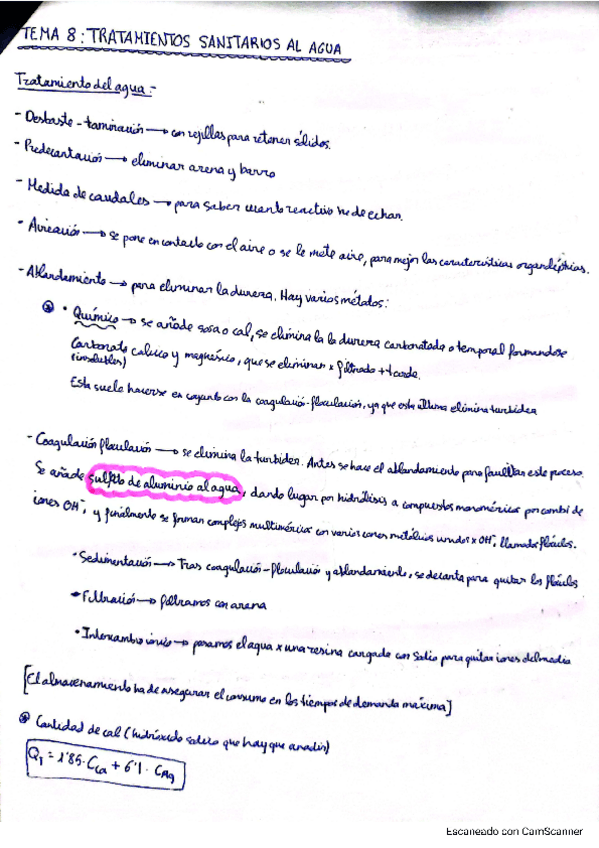 TEMA 8: TRATAMIENTOS SANITARIOS AL AGUA
Tratamiento del agua:-
- Desbaste - taminación → con rejillas para retener sólidos.
- Predecantación → eliminar arena y barro
- Medida de caudales → para saber cuanto reactivo he de echar.
- Aireación → se pone en contacto con el aire o se le mete aire, para mejor las características organolépticas.
- Ablandamiento → para eliminar la dureza. Hay varios métodos:
* • Químico → se añade sosa o cal, se elimina la la dureza carbonatada o temporal formandose
Carbonato calcico y magnésico, que se eliminan x filtrado +tarde.
(insolubles)
Esta suele hacerse en conjunto con la coagulación-floculación, ya que esta última elimina turbidea
- Coagulación floculación → se elimina la turbidez. Antes se hace el ablandamiento para facilitar este proceso.
Se añade sulfato de aluminio al agua, dando lugar por hidrólisis a compuestos monoméricos por combi de
iones OH⁻, y finalmente se forman complejos multiméricos con varios iones metálicos unidos x OH⁻, llamados flóculos.
• Sedimentación → Tras coagulación-floculación y ablandamiento, se decanta para quitar los flóculos
• Filtración → filtramos con arena
• Intercambio iónico → pasamos el agua x una resina cargada con Sodio para quitar iones del medio
[El almacenamiento ha de asegurar el consumo en los tiempos de demanda máxima]
* Cantidad de cal (hidróxido que hay que añadir)
Q₁ = 1'85 · C Ca + 6'1 · C Mg
Escaneado con CamScanner